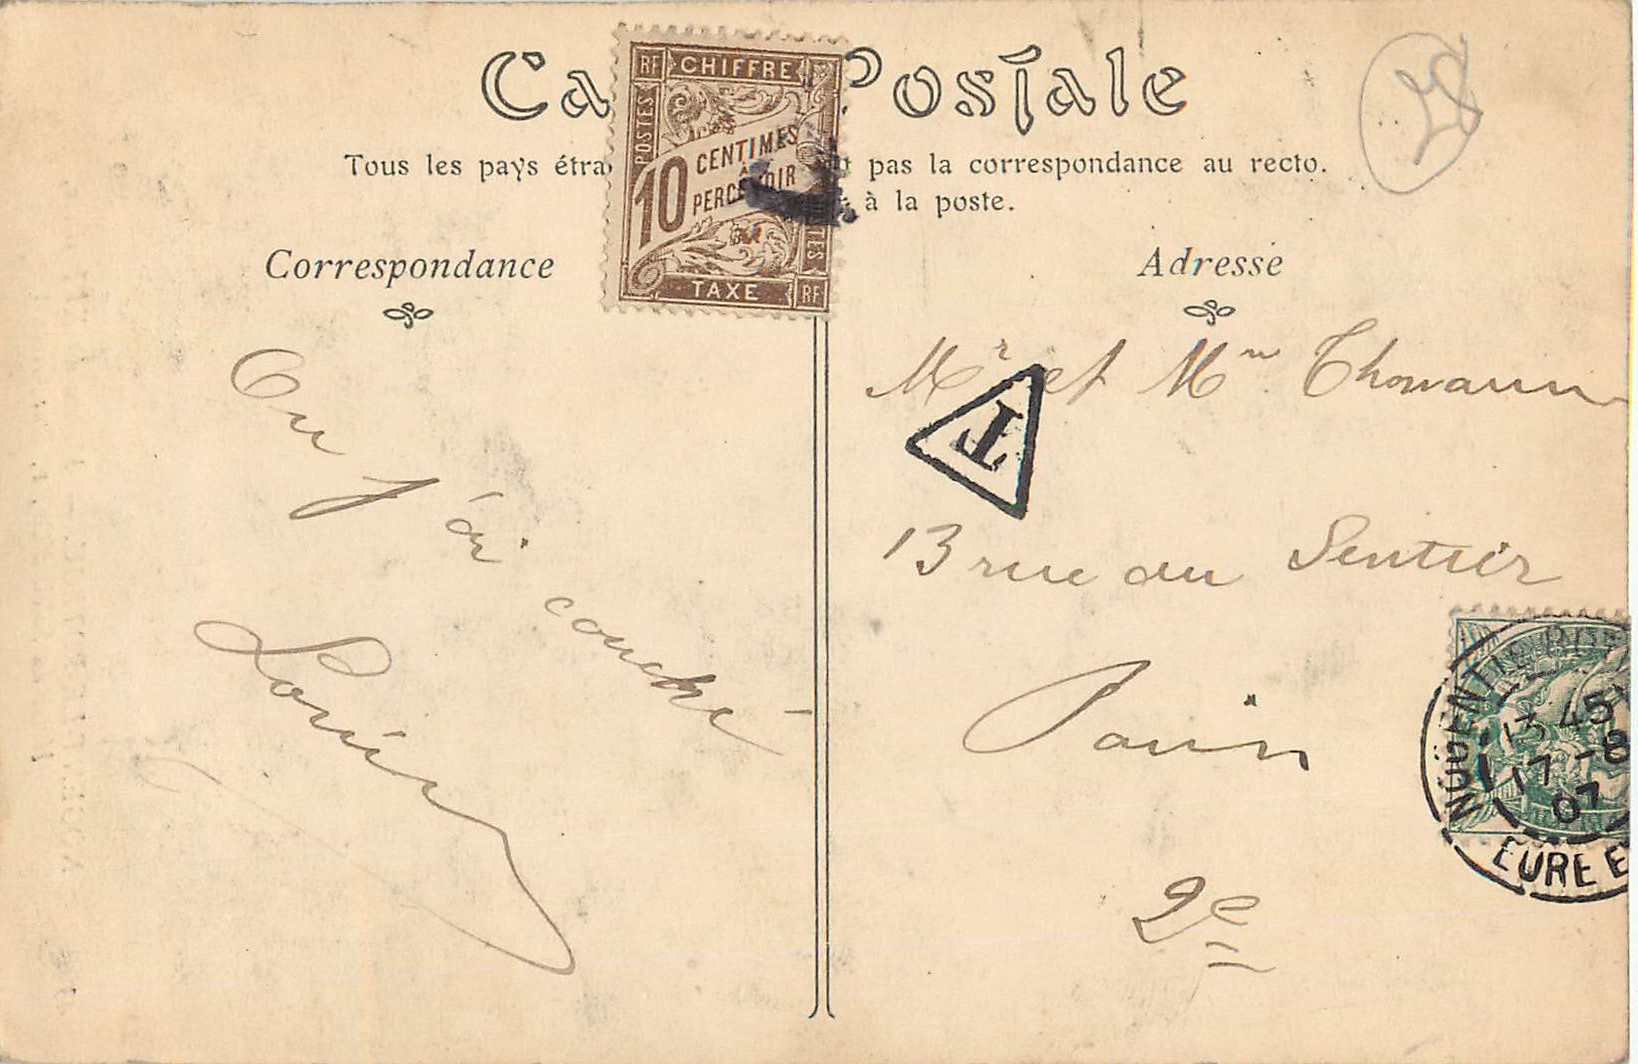 Ca Postale
Tous les pays étra pas la correspondance au recto.
à la poste.
RF CHIFFRE
POSTES
10 CENTIMES
À
PERCEVOIR
TAXE RF
Correspondance
Adresse
Ou j'ai couché
Louis
Mr et Mme Thomann
T
13 rue du Sentier
Paris
2e
NOGENT-LE-ROT
13 45
17 -8
07
EURE E